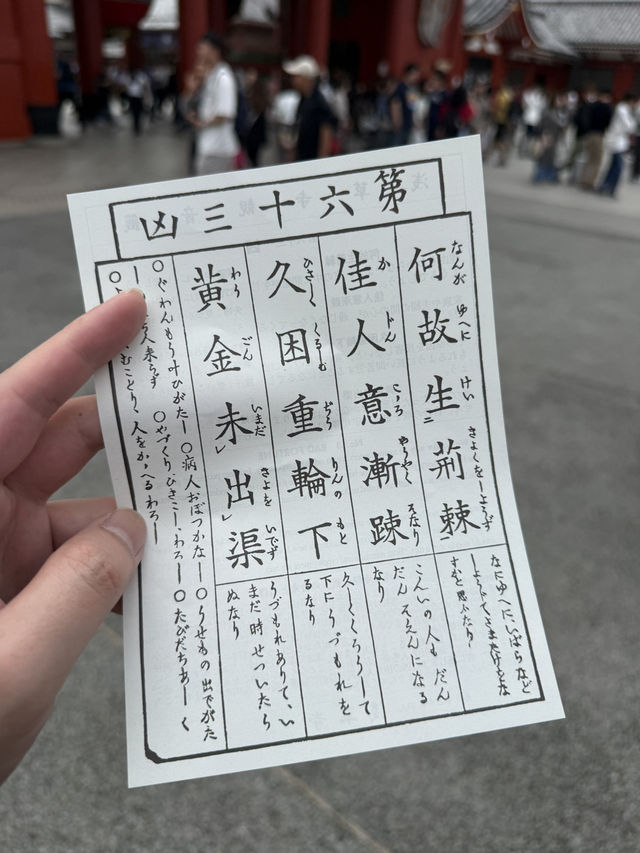 第六十三凶
何故生荊棘
なんがゆへにけいきよくをしようず
なにゆへに、いばらなど
しようじて、さまたげをな
すかと思ふたり
佳人意漸踈
かじんこゝろやうやくそなり
こんいの人も だん
だん そえんになる
なり
久困重輪下
ひさしくくるしむぢうりんのもと
久しくくろうして
下にうづもれを
るなり
黄金未出渠
わうごんいまだきよをいでず
うづもれありて、い
まだ時せついたら
ぬなり
○ぐわんもう叶ひがたし ○病人おぼつかなし ○うせもの出でがた
し 人来らず ○やづくりひきこし、わろし ○たびだちあしく
○むことり、人をかゝへるわろし